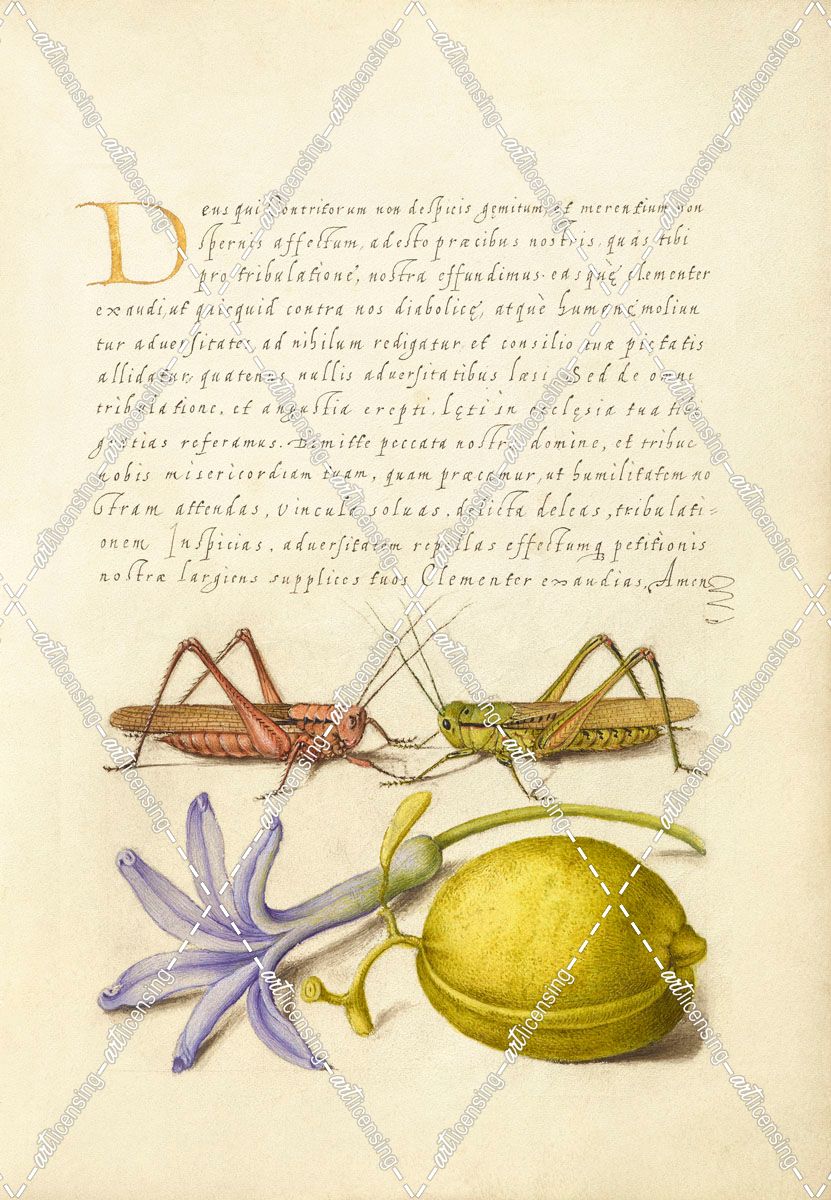 Deus qui Contritorum non despicis gęmitum, et merentium non
spernis affectum, adesto præcibus nostris, quas tibi
pro tribulatione, nostra effundimus. easquę clementer
exaudi, ut quicquid contra nos diabolicę, atquè humanę moliun
tur adversitates, ad nihilum redigatur, et consilio tuæ pietatis
allidatur, quatenus nullis adversitatibus læsi, Sed de omni
tribulatione, et angustia erepti, lęti in ecclęsia tua tibi
gratias referamus. Dimitte peccata nostra domine, et tribue
nobis misericordiam tuam, quam præcamur, ut humilitatem no
stram attendas, vincula soluas, delicta deleas, tribulati=
onem Inspicias, adversitatem repellas effectumq petitionis
nostræ largiens supplices tuos Clementer exaudias, Amen
artlicensing